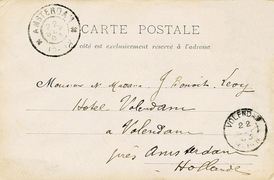 CARTE POSTALE
Ce côté est exclusivement réservé à l'adresse
AMSTERDAM
Monsieur et Madame J. Benoit-Levy
Hotel Volendam
à Volendam
près Amsterdam
Hollande
VOLENDAM
22